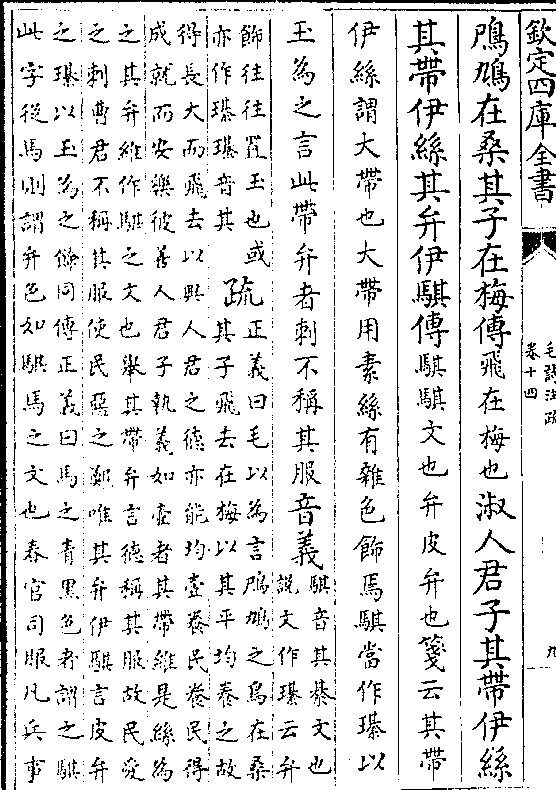 欽定四庫全書
毛詩注疏
卷十四
九
鳲鳩在桑其子在梅傳飛在梅也淑人君子其帶伊絲
其帶伊絲其弁伊騏傳騏騏文也弁皮弁也箋云其帶
伊絲謂大帶也大帶用素絲有雜色飾焉騏當作璂以
玉為之言此帶弁者刺不稱其服音義騏音其綦文也
說文作璂云弁
飾往往置玉也或
亦作璂璂音其
疏正義曰毛以為言鳲鳩之鳥在桑
其子飛去在梅以其平均養之故
得長大而飛去以興人君之德亦能均壹養民養民得
成就而安樂彼善人君子執義如壹者其帶維是絲為
之其弁維作騏之文也舉其帶弁言德稱其服故民愛
之刺曹君不稱其服使民惡之鄭唯其弁伊騏言皮弁
之璂以玉為之餘同傳正義曰馬之青黑色者謂之騏
此字從馬則謂弁色如騏馬之文也春官司服凡兵事